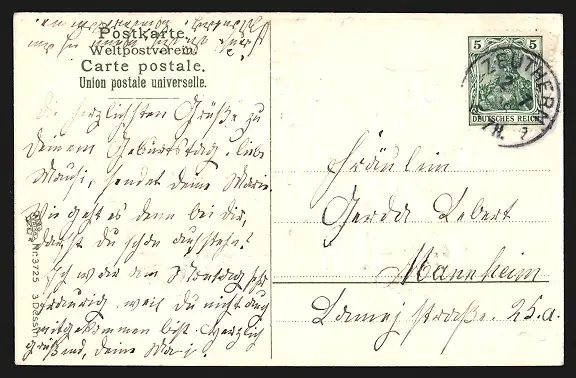 Postkarte.
Weltpostverein.
Carte postale.
Union postale universelle.
Die herzlichsten Grüße zu
Deinem Geburtstag, liebe
Mausi, sendet deine Marie.
Wie geht es denn bei dir,
darfst Du schon aufstehn?
Ich war am Montag sehr
traurig weil Du nicht
mitgekommen bist. Herzlich
grüßend, deine
Nr. 3725 3 Dessins
5 5
DEUTSCHES REICH
ZEUTHERN
Fräulein
Gerda Lebert
Mannheim
Lameystraße. 25.a.